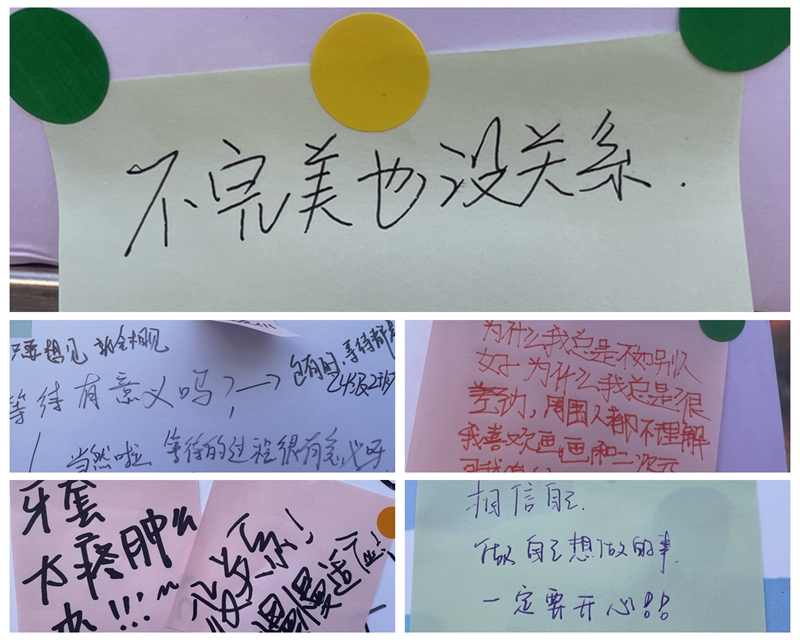 不完美也没关系.
只要想见 就会相见
等待有意义吗? → 包有的,等待都是
当然啦 等待的过程很有意义呀
为什么我总是不如别人
好 为什么我总是很
差劲,周围人都不理解
我喜欢画画和二次元
牙套
太疼肿么
办!!!~
没关系!
慢慢适应!
相信自己.
做自己想做的事.
一定要开心!!